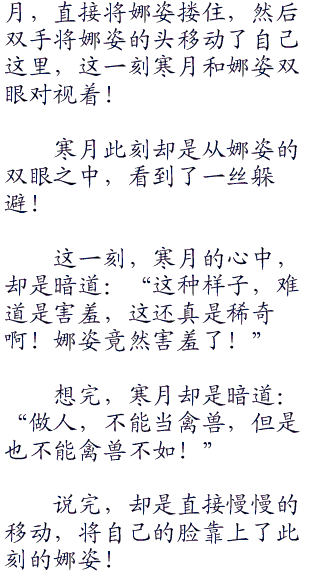 月，直接将娜姿搂住，然后
双手将娜姿的头移动了自己
这里，这一刻寒月和娜姿双
眼对视着！
寒月此刻却是从娜姿的
双眼之中，看到了一丝躲
避！
这一刻，寒月的心中，
却是暗道：“这种样子，难
道是害羞，这还真是稀奇
啊！娜姿竟然害羞了！”
想完，寒月却是暗道：
“做人，不能当禽兽，但是
也不能禽兽不如！”
说完，却是直接慢慢的
移动，将自己的脸靠上了此
刻的娜姿！